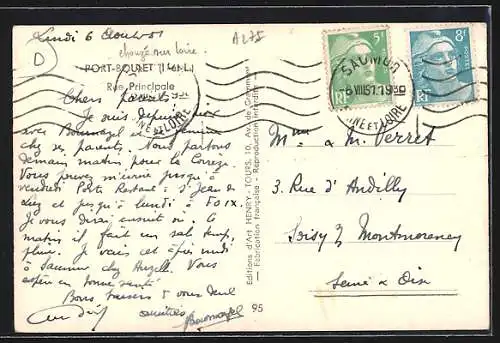 Lundi 6 Août 51
A 275
D
PORT-BOULET (I.-et-L.)
Rue Principale
5F
8F
RF
RF
SAUMUR
-6 VIII 51
MAINE ET LOIRE
Chers parents
Je suis depuis
avec
chez ses parents. Nous partons
demain matin pour la Corrèze
Vous pouvez m'écrire jusqu'à
vendredi Poste Restante à St Jean de
Luz et jusqu'à lundi à FOIX.
Je vous dirai ensuite où. Ce
matin il fait un sale temps,
pluie. Je vais cet après midi
à Saumur chez Vous
en bonne santé
Bons baisers à vous deux
amitiés
Mme & M. Verret
3 Rue d'Andilly
Soisy s/ Montmorency
Seine & Oise
Editions d'Art HENRY - TOURS, 10, Av. de Grammont
— Fabrication française - Reproduction interdite —
95